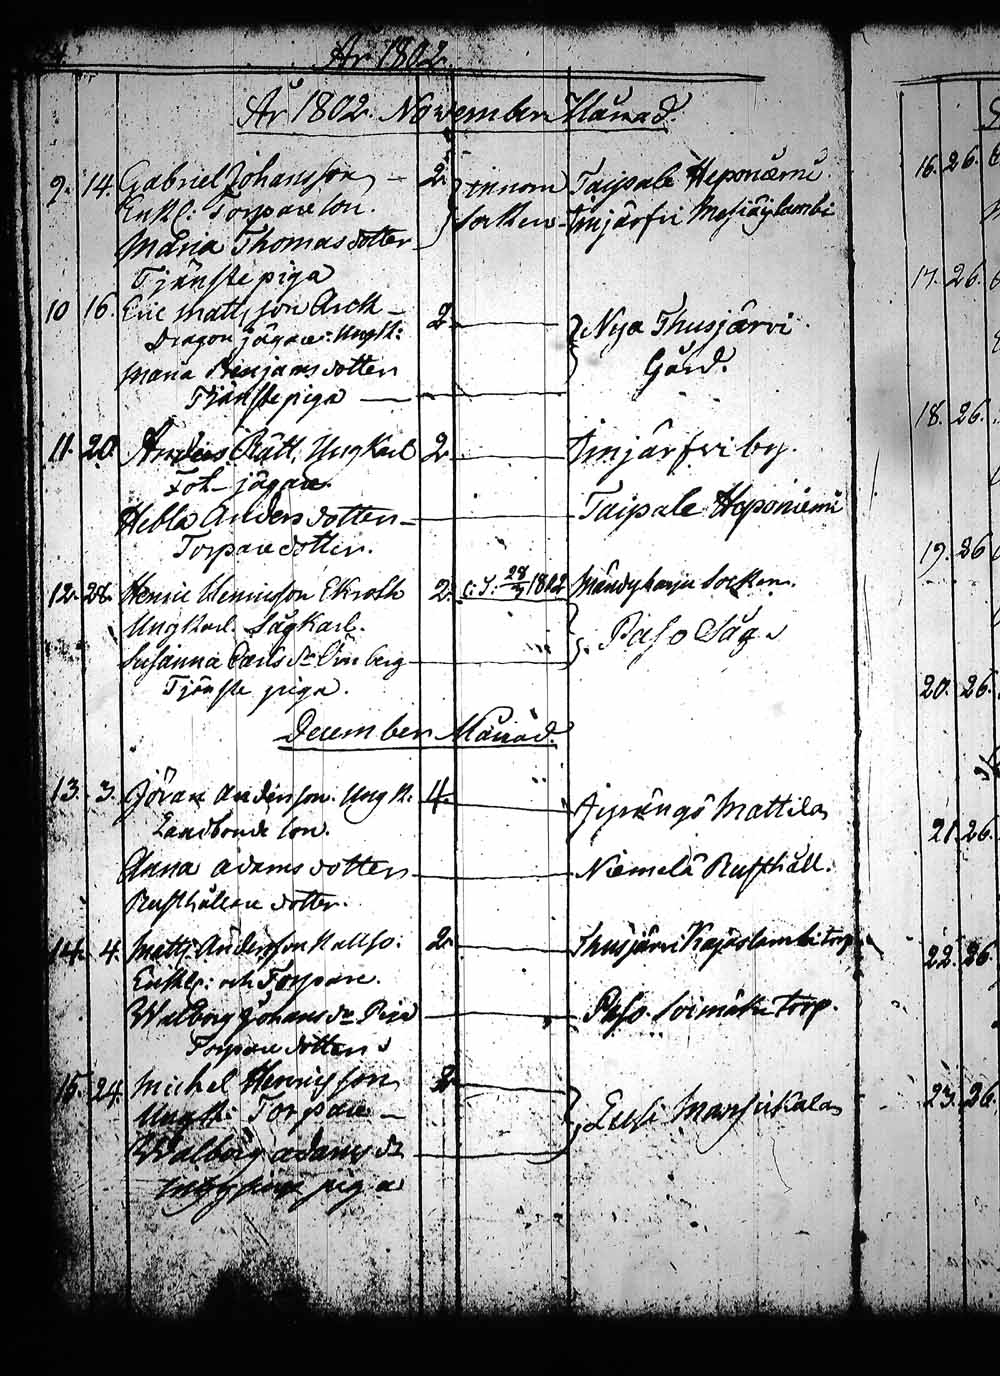 År 1802.
År 1802. November Månad.
9. 14. Gabriel Johansson 2. innom Taipale Heponiemi
Enkl: Torpare son. Socken
Maria Thomasdotter
Tjänste piga
10 16. Eric Mattsson
Dragon jägare: Ungk: 2. Nya Thusjärvi
Maria Benjamsdotter Gård.
Tjänste piga
11. 20. Anders Rätt, Ungkarl 2. by.
Fot-jägare.
Hebla Andersdotter Taipale Heponiemi
Torparedotter.
12. 28. Henric Henricsson Ekroth 2. 1802 Mäntyharju Socken.
Ungkarl. Sågkarl. Paso Såg
Susanna Carls Dr Örnberg
Tjänste piga.
December Månad.
13. 3. Jöran Andersson. Ungk. 4. Mattila
Landbonde son.
Anna Adamsdotter Niemelä Rusthåll.
Rusthållare dotter.
14. 4. Matts Andersson 2. Thusjärvi torp
Enkl: och Torpare.
Walborg Johans Dr Paso torp.
Torpare dotter
15. 24. Michel Henricsson 2.
Ungk: Torpare
Walborg Adams Dr
piga
16. 26.
17. 26.
18. 26.
19. 26
20. 26.
21. 26.
22. 26.
23. 26.